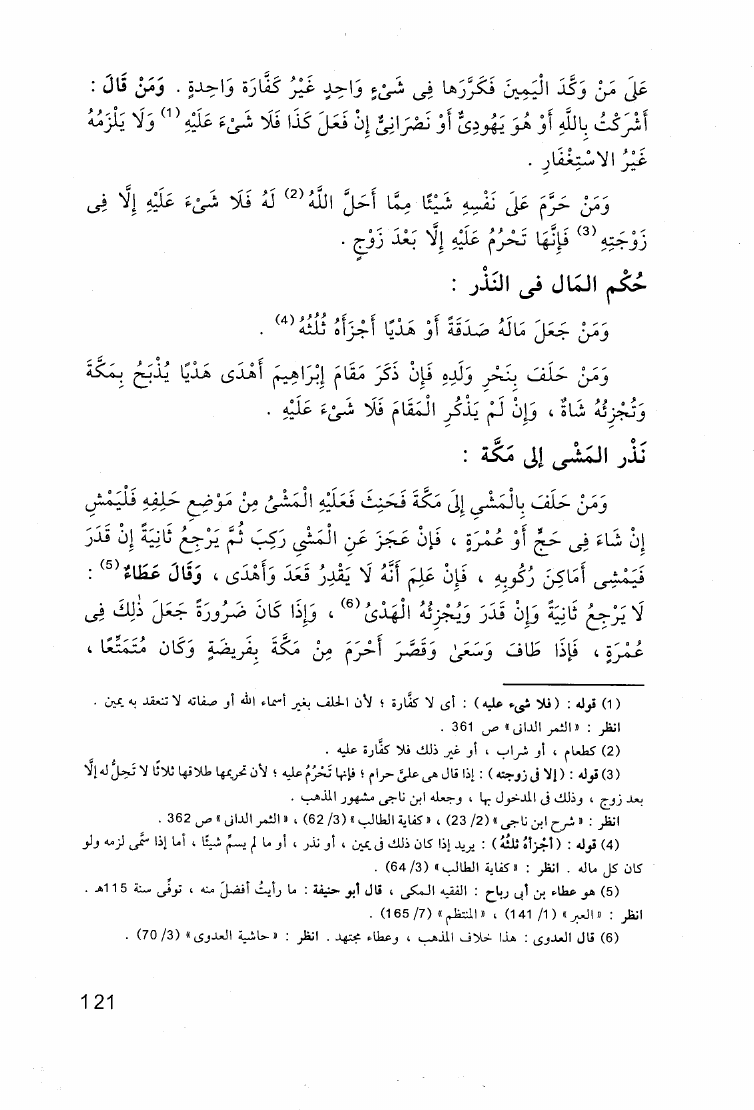 عَلَى مَنْ وَكَّدَ الْيَمِينَ فَكَرَّرَها فِى شَىْءٍ وَاحِدٍ غَيْرُ كَفَّارَةٍ وَاحِدةٍ . وَمَنْ قَالَ :
أَشْرَكْتُ بِاللَّهِ أَوْ هُوَ يَهُودِىٌّ أَوْ نَصْرَانِىٌّ إِنْ فَعَلَ كَذَا فَلَا شَىْءَ عَلَيْهِ (1) وَلَا يَلْزَمُهُ
غَيْرُ الاسْتِغْفَارِ .
وَمَنْ حَرَّمَ عَلَى نَفْسِهِ شَيْئًا مِمَّا أَحَلَّ اللَّهُ (2) لَهُ فَلَا شَىْءَ عَلَيْهِ إِلَّا فِى
زَوْجَتِهِ (3) فَإِنَّهَا تَحْرُمُ عَلَيْهِ إِلَّا بَعْدَ زَوْجٍ .
حُكْم المَال فى النَذْر :
وَمَنْ جَعَلَ مَالَهُ صَدَقَةً أَوْ هَدْيًا أَجْزَأَهُ ثُلُثُهُ (4) .
وَمَنْ حَلَفَ بِنَحْرِ وَلَدِهِ فَإِنْ ذَكَرَ مَقَامَ إِبْرَاهِيمَ أَهْدَى هَدْيًا يُذْبَحُ بِمَكَّةَ
وَتُجْزِئُهُ شَاةٌ ، وَإِنْ لَمْ يَذْكُرِ الْمَقَامَ فَلَا شَىْءَ عَلَيْهِ .
نَذْر المَشْى إلى مَكَّة :
وَمَنْ حَلَفَ بِالْمَشْىِ إِلَى مَكَّةَ فَحَنِثَ فَعَلَيْهِ الْمَشْىُ مِنْ مَوْضِعِ حَلِفِهِ فَلْيَمْشِ
إِنْ شَاءَ فِى حَجٍّ أَوْ عُمْرَةٍ ، فَإِنْ عَجَزَ عَنِ الْمَشْىِ رَكِبَ ثُمَّ يَرْجِعُ ثَانِيَةً إِنْ قَدَرَ
فَيَمْشِى أَمَاكِنَ رُكُوبِهِ ، فَإِنْ عَلِمَ أَنَّهُ لَا يَقْدِرُ قَعَدَ وَأَهْدَى ، وَقَالَ عَطَاءٌ (5) :
لَا يَرْجِعُ ثَانِيَةً وَإِنْ قَدَرَ وَيُجْزِئُهُ الْهَدْىُ (6) ، وَإِذَا كَانَ ضَرُورَةً جَعَلَ ذٰلِكَ فِى
عُمْرَةٍ ، فَإِذَا طَافَ وَسَعَىٰ وَقَصَّرَ أَحْرَمَ مِنْ مَكَّةَ بِفَرِيضَةٍ وَكَان مُتَمَتِّعًا ،
(1) قوله : ( فلا شىء عليه ) : أى لا كفَّارة ؛ لأن الحلف بغير أسماء الله أو صفاته لا تنعقد به يمين .
انظر : « الثمر الدانى » ص 361 .
(2) كطعام ، أو شراب ، أو غير ذلك فلا كفَّارة عليه .
(3) قوله : ( إلا فى زوجته ) : إذا قال هى علىَّ حرام ؛ فإنها تَحْرُمُ عليه ؛ لأن تحريمها طلاقها ثلاثًا لا تَحِلُّ له إلَّا
بعد زوج ، وذلك فى المدخول بها ، وجعله ابن ناجى مشهور المذهب .
انظر : « شرح ابن ناجى » (2/ 23) ، « كفاية الطالب » (3/ 62) ، « الثمر الدانى » ص 362 .
(4) قوله : ( أجزأهُ ثُلُثُهُ ) : يريد إذا كان ذلك فى يمين ، أو نذر ، أو ما لم يسمِّ شيئًا ، أما إذا سمَّى لزمه ولو
كان كل ماله . انظر : « كفاية الطالب » (3/ 64) .
(5) هو عطاء بن أبى رباح : الفقيه المكى ، قال أبو حنيفة : ما رأيتُ أفضلَ منه ، توفِّى سنة 115هـ .
انظر : « العبر » (1/ 141) ، « المنتظم » (7/ 165) .
(6) قال العدوى : هذا خلاف المذهب ، وعطاء مجتهد . انظر : « حاشية العدوى » (3/ 70) .
121